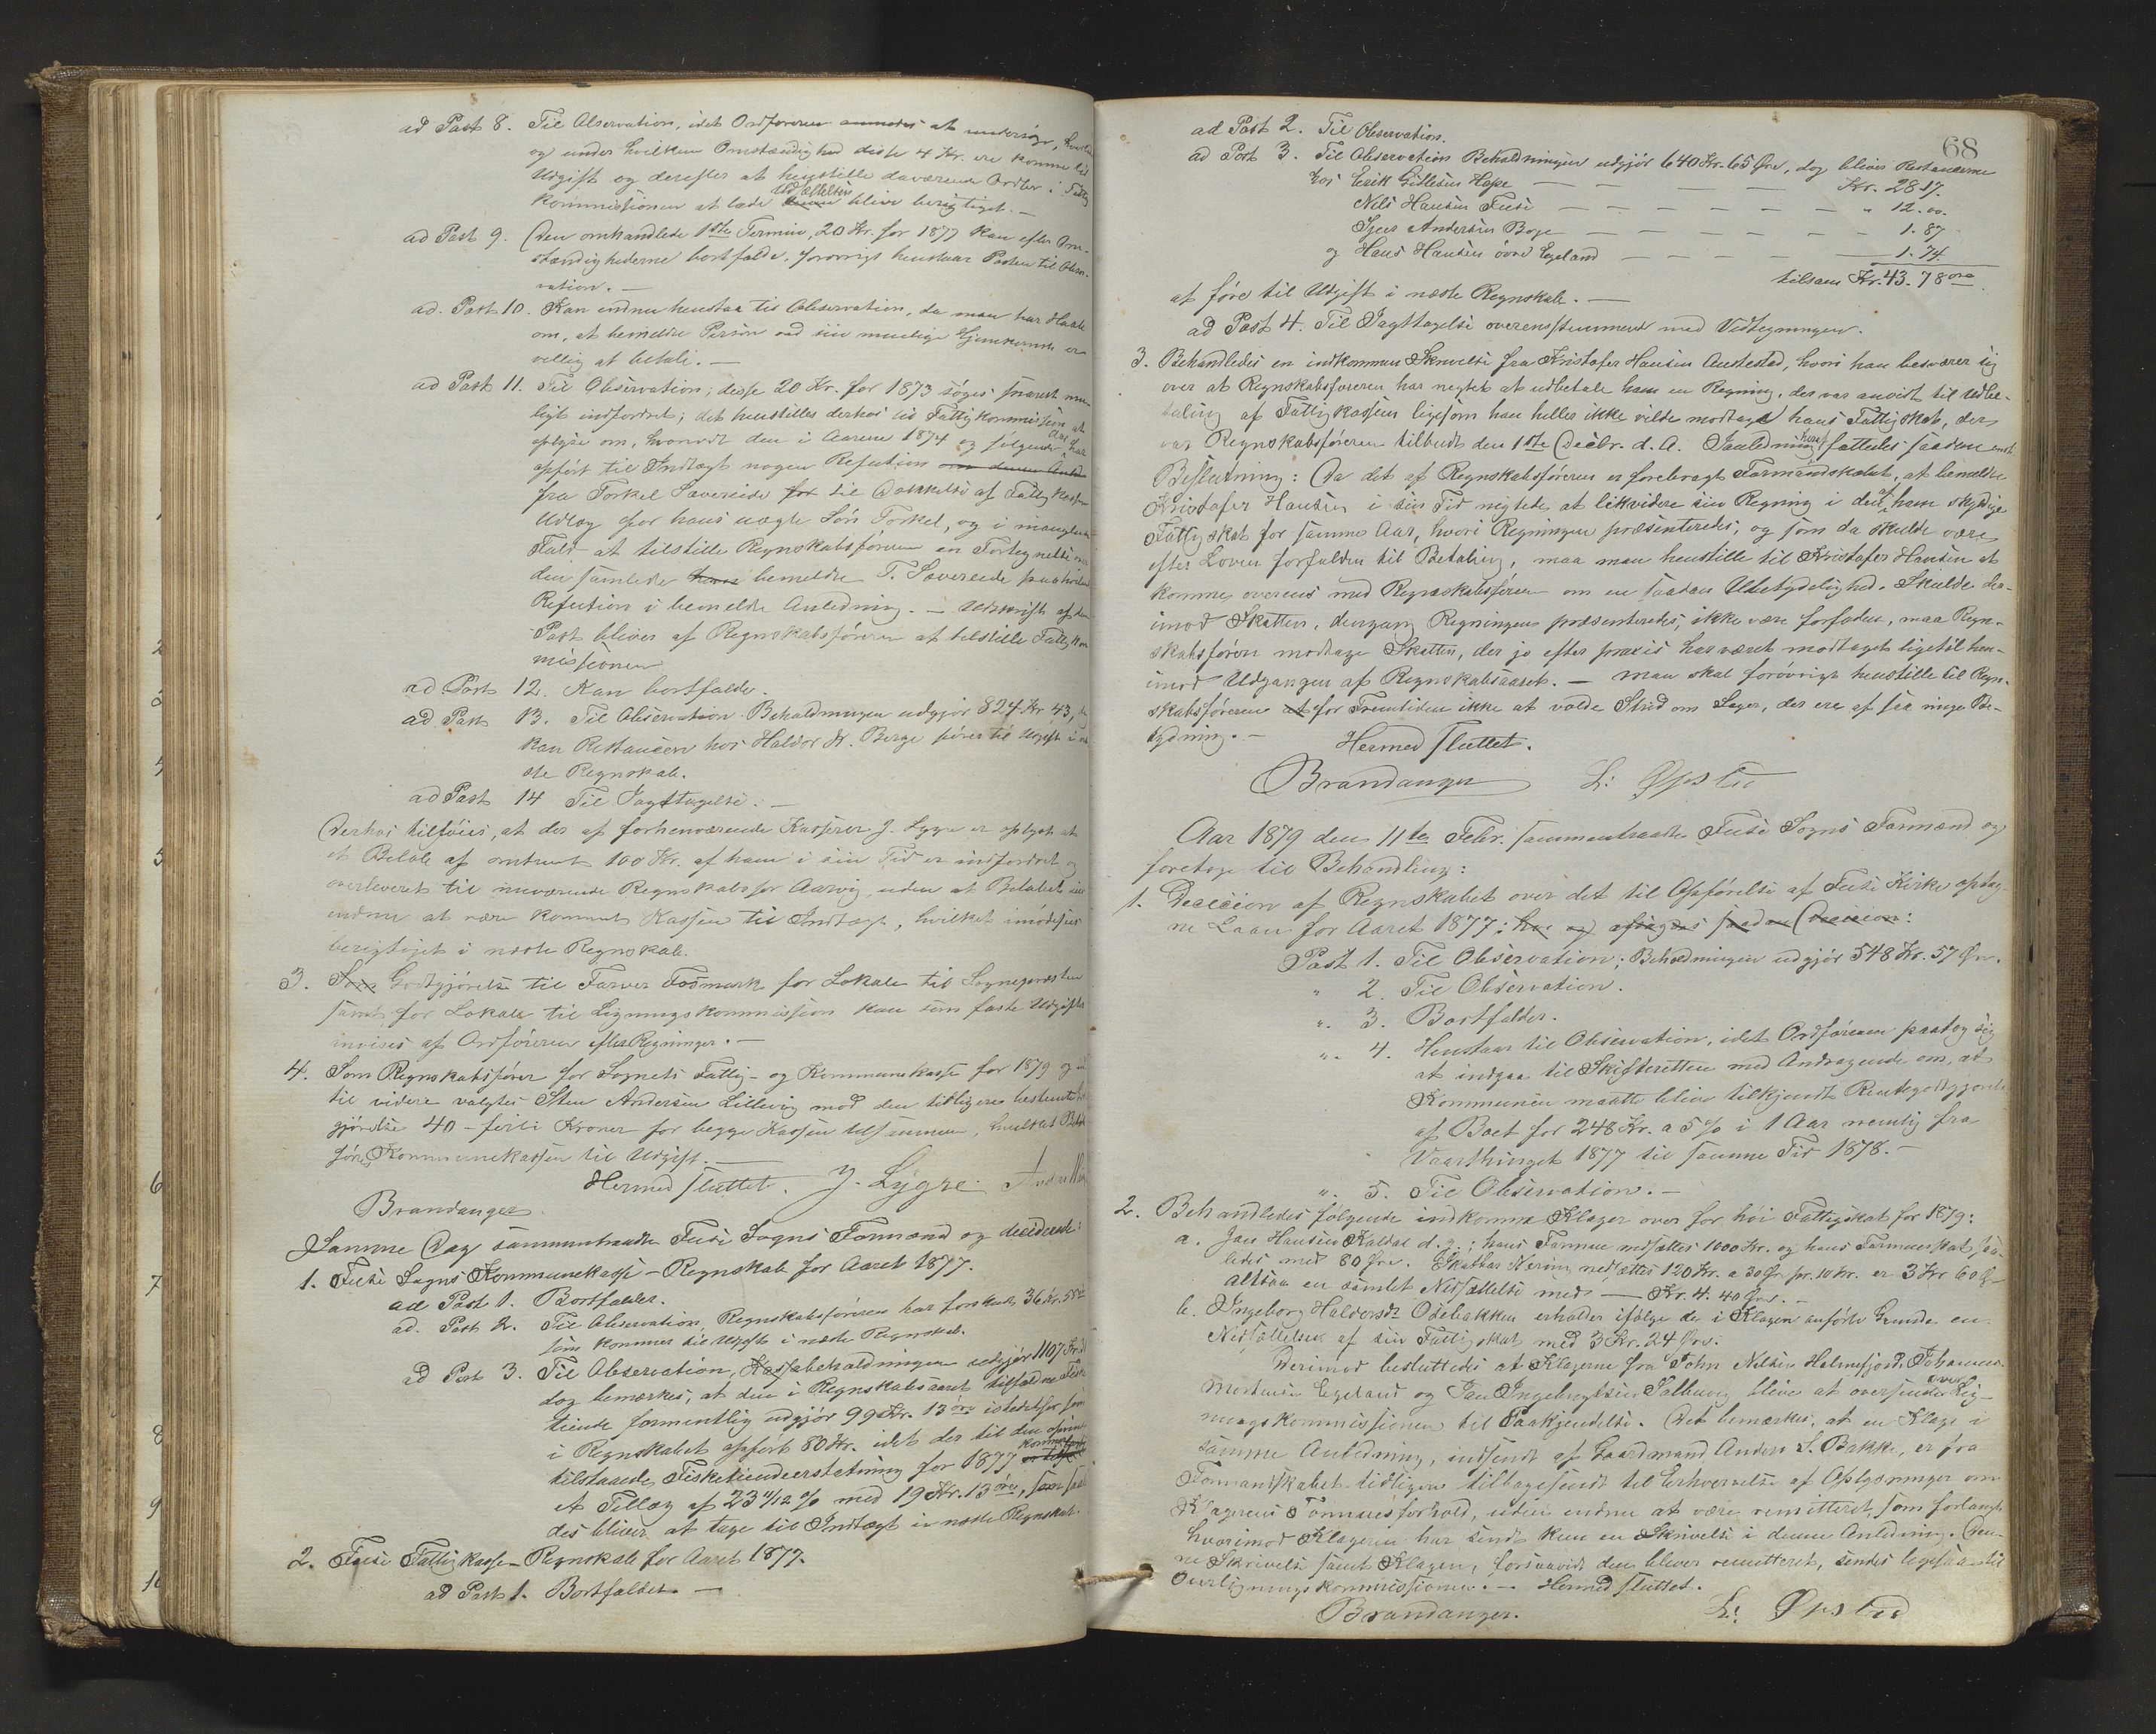 ad Post 8. Til Observation, idet Ordføreren anmodes at undersøge,
og under hvilken Omstændighed disse 4 Kr. ere komne til
Udgift og derefter at henstille daværende Ordfør i Fattig
kommissionen at lade Udsættelsen blive berigtiget. —
ad Post 9. Den omhandlede 1ste Termin, 20 Kr. for 1877 kan efter Om-
stændighederne bortfalde, forøvrigt henstaar Posten til Obser-
vation. —
ad. Post 10. Kan endnu henstaa til Observation, da man har Haab
om, at bemeldte Person ved sin muelige Hjemkomst er
villig at betale. —
ad Post 11. Til Observation; disse 20 Kr. for 1873 søges snarest mu-
ligt indfordret; det henstilles derhos til Fattigkommissionen at
oplyse om, hvorvidt den i Aarene 1874 og følgende Aar har
opført til Indtægt nogen Refution om denne Anled
fra Torkel Sævereide for til Dækkelse af Fattigkassens
Udlæg for hans uægte Søn Torkel, og i manglende
Fald at tilstille Regnskabsføreren en Fortegnelse over
den samlede bemeldte T. Sævereide paahvilende
Refution i bemeldte Anledning. — Udskrift af denne
Post bliver af Regnskabsføreren at tilstille Fattigkom
missionen
ad Post 12. Kan bortfalde.
ad Post 13. Til Observation. Beholdningen udgjør 824 Kr 43,
kan Restancen hos Haldor H. Berge føres til Udgift i næ
ste Regnskab.
ad Post 14 Til Iagttagelse. —
Derhos tilføies, at der af forhenværende Kasserer J. Lygre er oplyst at
et Beløb af omtrent 100 Kr. af ham i sin Tid er indfordret og
overleveret til nuværende Regnskabsfør Aarvig, uden at Beløbet
endnu at være kommet Kassen til Indtægt, hvilket imødesees
berigtiget i næste Regnskab.
3. Godtgjørelse til Farver Fosmark for Lokale til Sognepræsten
samt for Lokale til Ligningskommission kan som faste Udgifter
anvises af Ordføreren efter Regninger. —
4. Som Regnskabsfører for Sognets Fattig- og Kommunekasse for 1879 og ind
til videre valgtes Sten Andersen Lillevig mod den tidligere bestemte
gjørelse 40 - firti Kroner for begge Kasser tilsammen, hvilket Beløb
føres Kommunekassen til Udgift. —
Hermed sluttet. J. Lygre
Brandanger
Samme Dag sammentraadte Fuse Sogns Formænd og deciderede:
1. Fuse Sogns Kommunekasse-Regnskab for Aaret 1877.
ad Post 1. Bortfalder.
ad. Post 2. Til Observation, Regnskabsføreren har forskudt 36 Kr. 55
som kommer til Udgift i næste Regnskab.
ad Post 3. Til Observation, Kassabeholdningen udgjør 1107 Kr.
dog bemærkes, at den i Regnskabsaaret tilfaldne Fiske
tiende formentlig udgjør 99 Kr. 13 øre istedetfor som
i Regnskabet opført 80 Kr. idet der til den
tilstaaede Fisketiendeerstatning for 1877 kommer
et Tillæg af 23 11/12 % med 19 Kr. 13 øre, som saa
des bliver at tage til Indtægt i næste Regnskab.
2. Fuse Fattigkasse-Regnskab for Aaret 1877.
ad Post 1. Bortfalder. —
68
ad Post 2. Til Observation.
ad Post 3. Til Observation Beholdningen udgjør 640 Kr. 65 Øre, dog bliver Restancerne
hos Erik Gitlesen Hope — Kr. 28.17.
Nils Hansen Fuse — " 12.00.
Sjur Andersen Boge — 1.87
og Hans Hansen øvre Egeland — 1.74
tilsam Kr. 43.78 øre
at føre til Udgift i næste Regnskab. —
ad Post 4. Til Iagttagelse overensstemmende med Vedtegningen.
3. Behandledes en indkommen Skrivelse fra Kristofer Hansen Austestad, hvori han besværer sig
over at Regnskabsføreren har negtet at udbetale ham en Regning, der var anvist til Udbe-
taling af Fattigkassen ligesom han heller ikke vilde modtage hans Fattigskat, der
var Regnskabsføreren tilbudt den 1ste Decbr. d. A. I Anledning heraf fattedes saadan enst.
Beslutning: Da det af Regnskabsføreren er forebragt Formandskabet, at bemeldte
Kristofer Hansen i sin Tid negtede at likvidere sin Regning i den af ham skyldige
Fattigskat for samme Aar, hvori Regningen præsenteredes, og som da skulde være
efter Loven forfalden til Betaling, maa man henstille til Kristofer Hansen at
komme overens med Regnskabsføreren om en saadan Ubetydelighed. Skulde der-
imod Skatten, dengang Regningen præsenteredes, ikke være forfalden, maa Regn-
skabsføreren modtage Skatten, der jo efter praxis har været modtaget ligetil hen-
imod Udgangen af Regnskabsaaret. — Man skal forøvrigt henstille til Regn-
skabsføreren at for Fremtiden ikke at volde Strid om Sager, der ere af saa ringe Be-
tydning. —
Hermed sluttet.
Brandanger L: Opsted
Aar 1879 den 11te Febr. sammentraadte Fuse Sogns Formænd og
foretoge til Behandling:
1. Decision af Regnskabet over det til Opførelse af Fuse Kirke optag-
ne Laan for Aaret 1877: hvor og afsagdes saadan Decision:
Post 1. Til Observation; Beholdningen udgjør 548 Kr. 57 Øre.
" 2. Til Observation.
" 3. Bortfalder.
" 4. Henstaar til Observation, idet Ordføreren paatog sig
at indgaa til Skifteretten med Andragende om, at
Kommunen maatte blive tilkjendt Rentegodtgjørelse
af Boet for 248 Kr. a 5% i 1 Aar nemlig fra
Vaarthinget 1877 til samme Tid 1878. —
" 5. Til Observation. —
2. Behandledes følgende indkomne Klager over for høi Fattigskat for 1879:
a. Jan Hansen Kaldal d. y.; hans Formue nedsættes 1000 Kr. og hans Formueskat saa-
ledes med 80 Øre. Skatbar Næring nedsættes 120 Kr. a 30 Ør pr. 10 Kr. er 3 Kr 60 Ø
altsaa en samlet Nedsættelse med — Kr. 4. 40 Øre. —
b. Ingeborg Haldorsdr Odebakken erholder ifølge de i Klagen anførte Grunde en
Nedsættelse af sin Fattigskat med 3 Kr. 24 Øre.
Derimod besluttedes at Klagerne fra John Nilsen Holmefjord, Johannes
Mortensen Egeland og Jan Ingebrigtsen Salbuvig blive at oversende Overlig-
ningskommissionen til Paakjendelse. Det bemærkes, at en Klage i
samme Anledning, indsendt af Gaardmand Anders S. Bakke, er fra
Formandskabet tidligere tilbagesendt til Erhvervelse af Oplysninger om
Klagerens Formuesforhold, uden endnu at være remitteret, som forlangt
hvorimod Klageren har sendt kun en Skrivelse i denne Anledning. Den-
ne Skrivelse samt Klagen, forsaavidt den bliver remitteret, sendes ligesaa til
Overligningskommissionen. — Hermed sluttet.
Brandanger. L: Opsted